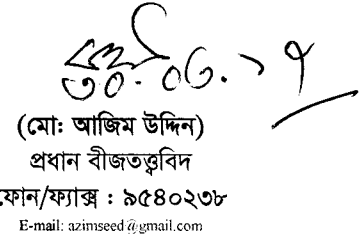 ৩০.০৩.১৭
(মো: আজিম উদ্দিন)
প্রধান বীজতত্ত্ববিদ
ফোন/ফ্যাক্স : ৯৫৪০২৩৮
E-mail: azimseed@gmail.com